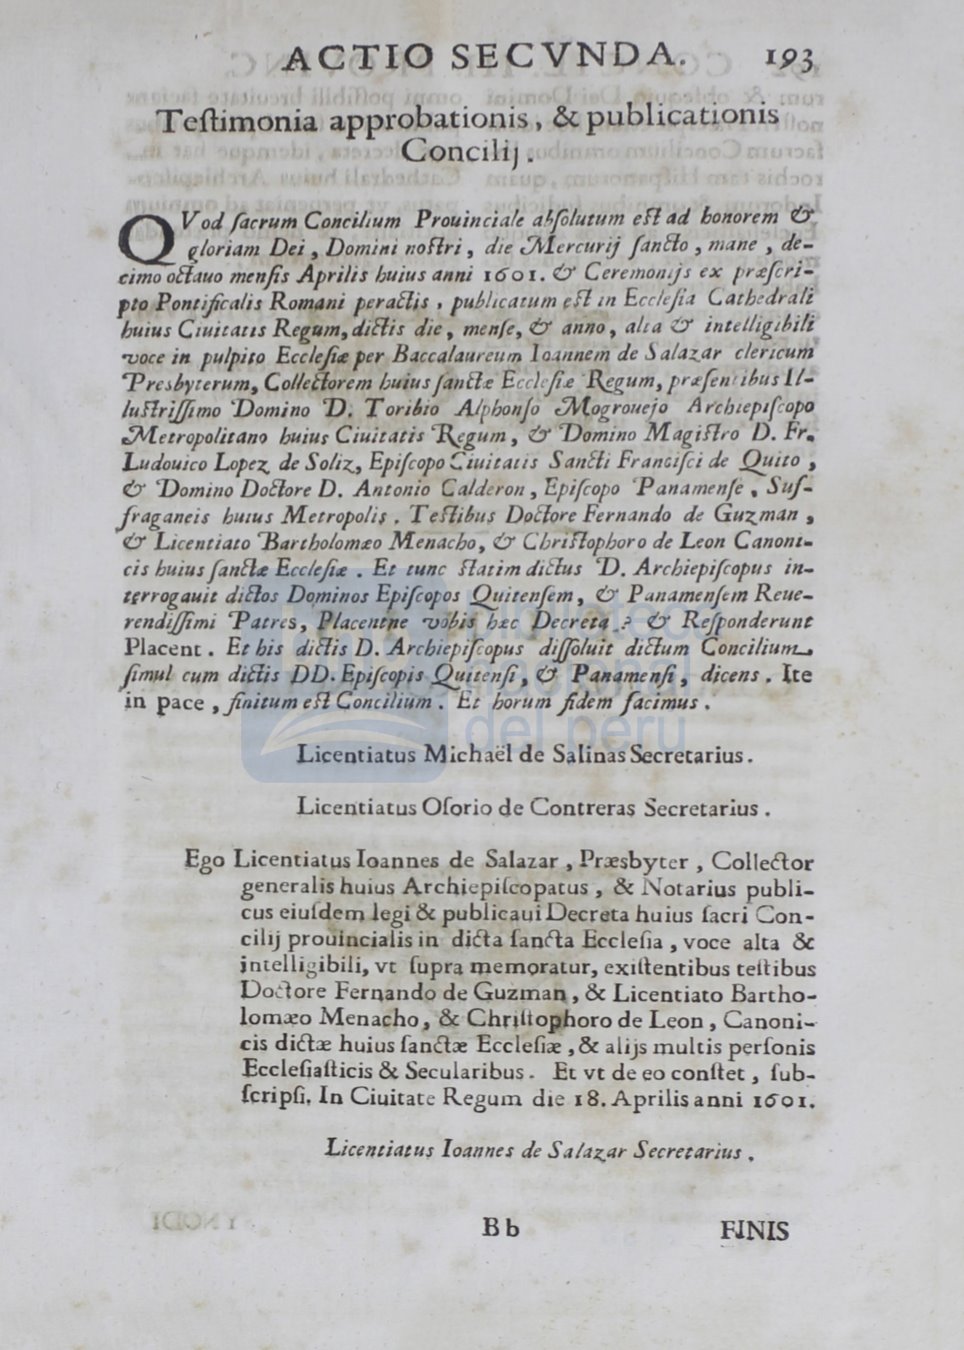 ACTIO SECVNDA. 193
Teſtimonia approbationis, & publicationis
Concilij.
QVod ſacrum Concilium Prouinciale abſolutum eſt ad honorem &
gloriam Dei, Domini noſtri, die Mercurij ſancto, mane, de-
cimo octauo menſis Aprilis huius anni 1601. & Ceremonijs ex præſcri-
pto Pontificalis Romani peractis, publicatum eſt in Eccleſia Cathedrali
huius Ciuitatis Regum, dictis die, menſe, & anno, alta & intelligibili
voce in pulpito Eccleſiæ per Baccalaureum Ioannem de Salazar clericum
Presbyterum, Collectorem huius ſanctæ Eccleſiæ Regum, præſentibus Il-
luſtriſſimo Domino D. Toribio Alphonſo Mogrouejo Archiepiſcopo
Metropolitano huius Ciuitatis Regum, & Domino Magiſtro D. Fr.
Ludouico Lopez de Soliz, Epiſcopo Ciuitatis Sancti Franciſci de Quito,
& Domino Doctore D. Antonio Calderon, Epiſcopo Panamenſe, Suf-
fraganeis huius Metropolis. Teſtibus Doctore Fernando de Guzman,
& Licentiato Bartholomæo Menacho, & Chriſtophoro de Leon Canoni-
cis huius ſanctæ Eccleſiæ. Et tunc ſtatim dictus D. Archiepiſcopus in-
terrogauit dictos Dominos Epiſcopos Quitenſem, & Panamenſem Reue-
rendiſſimi Patres, Placentne vobis hæc Decreta? & Reſponderunt
Placent. Et his dictis D. Archiepiſcopus diſſoluit dictum Concilium,
ſimul cum dictis DD. Epiſcopis Quitenſi, & Panamenſi, dicens. Ite
in pace, finitum eſt Concilium. Et horum fidem facimus.
Licentiatus Michaël de Salinas Secretarius.
Licentiatus Oſorio de Contreras Secretarius.
Ego Licentiatus Ioannes de Salazar, Præsbyter, Collector
generalis huius Archiepiſcopatus, & Notarius publi-
cus eiuſdem legi & publicaui Decreta huius ſacri Con-
cilij prouincialis in dicta ſancta Eccleſia, voce alta &
intelligibili, vt ſupra memoratur, exiſtentibus teſtibus
Doctore Fernando de Guzman, & Licentiato Bartho-
lomæo Menacho, & Chriſtophoro de Leon, Canoni-
cis dictæ huius ſanctæ Eccleſiæ, & alijs multis perſonis
Eccleſiaſticis & Secularibus. Et vt de eo conſtet, ſub-
ſcripſi. In Ciuitate Regum die 18. Aprilis anni 1601.
Licentiatus Ioannes de Salazar Secretarius.
Bb FINIS
biblioteca
nacional
del perú